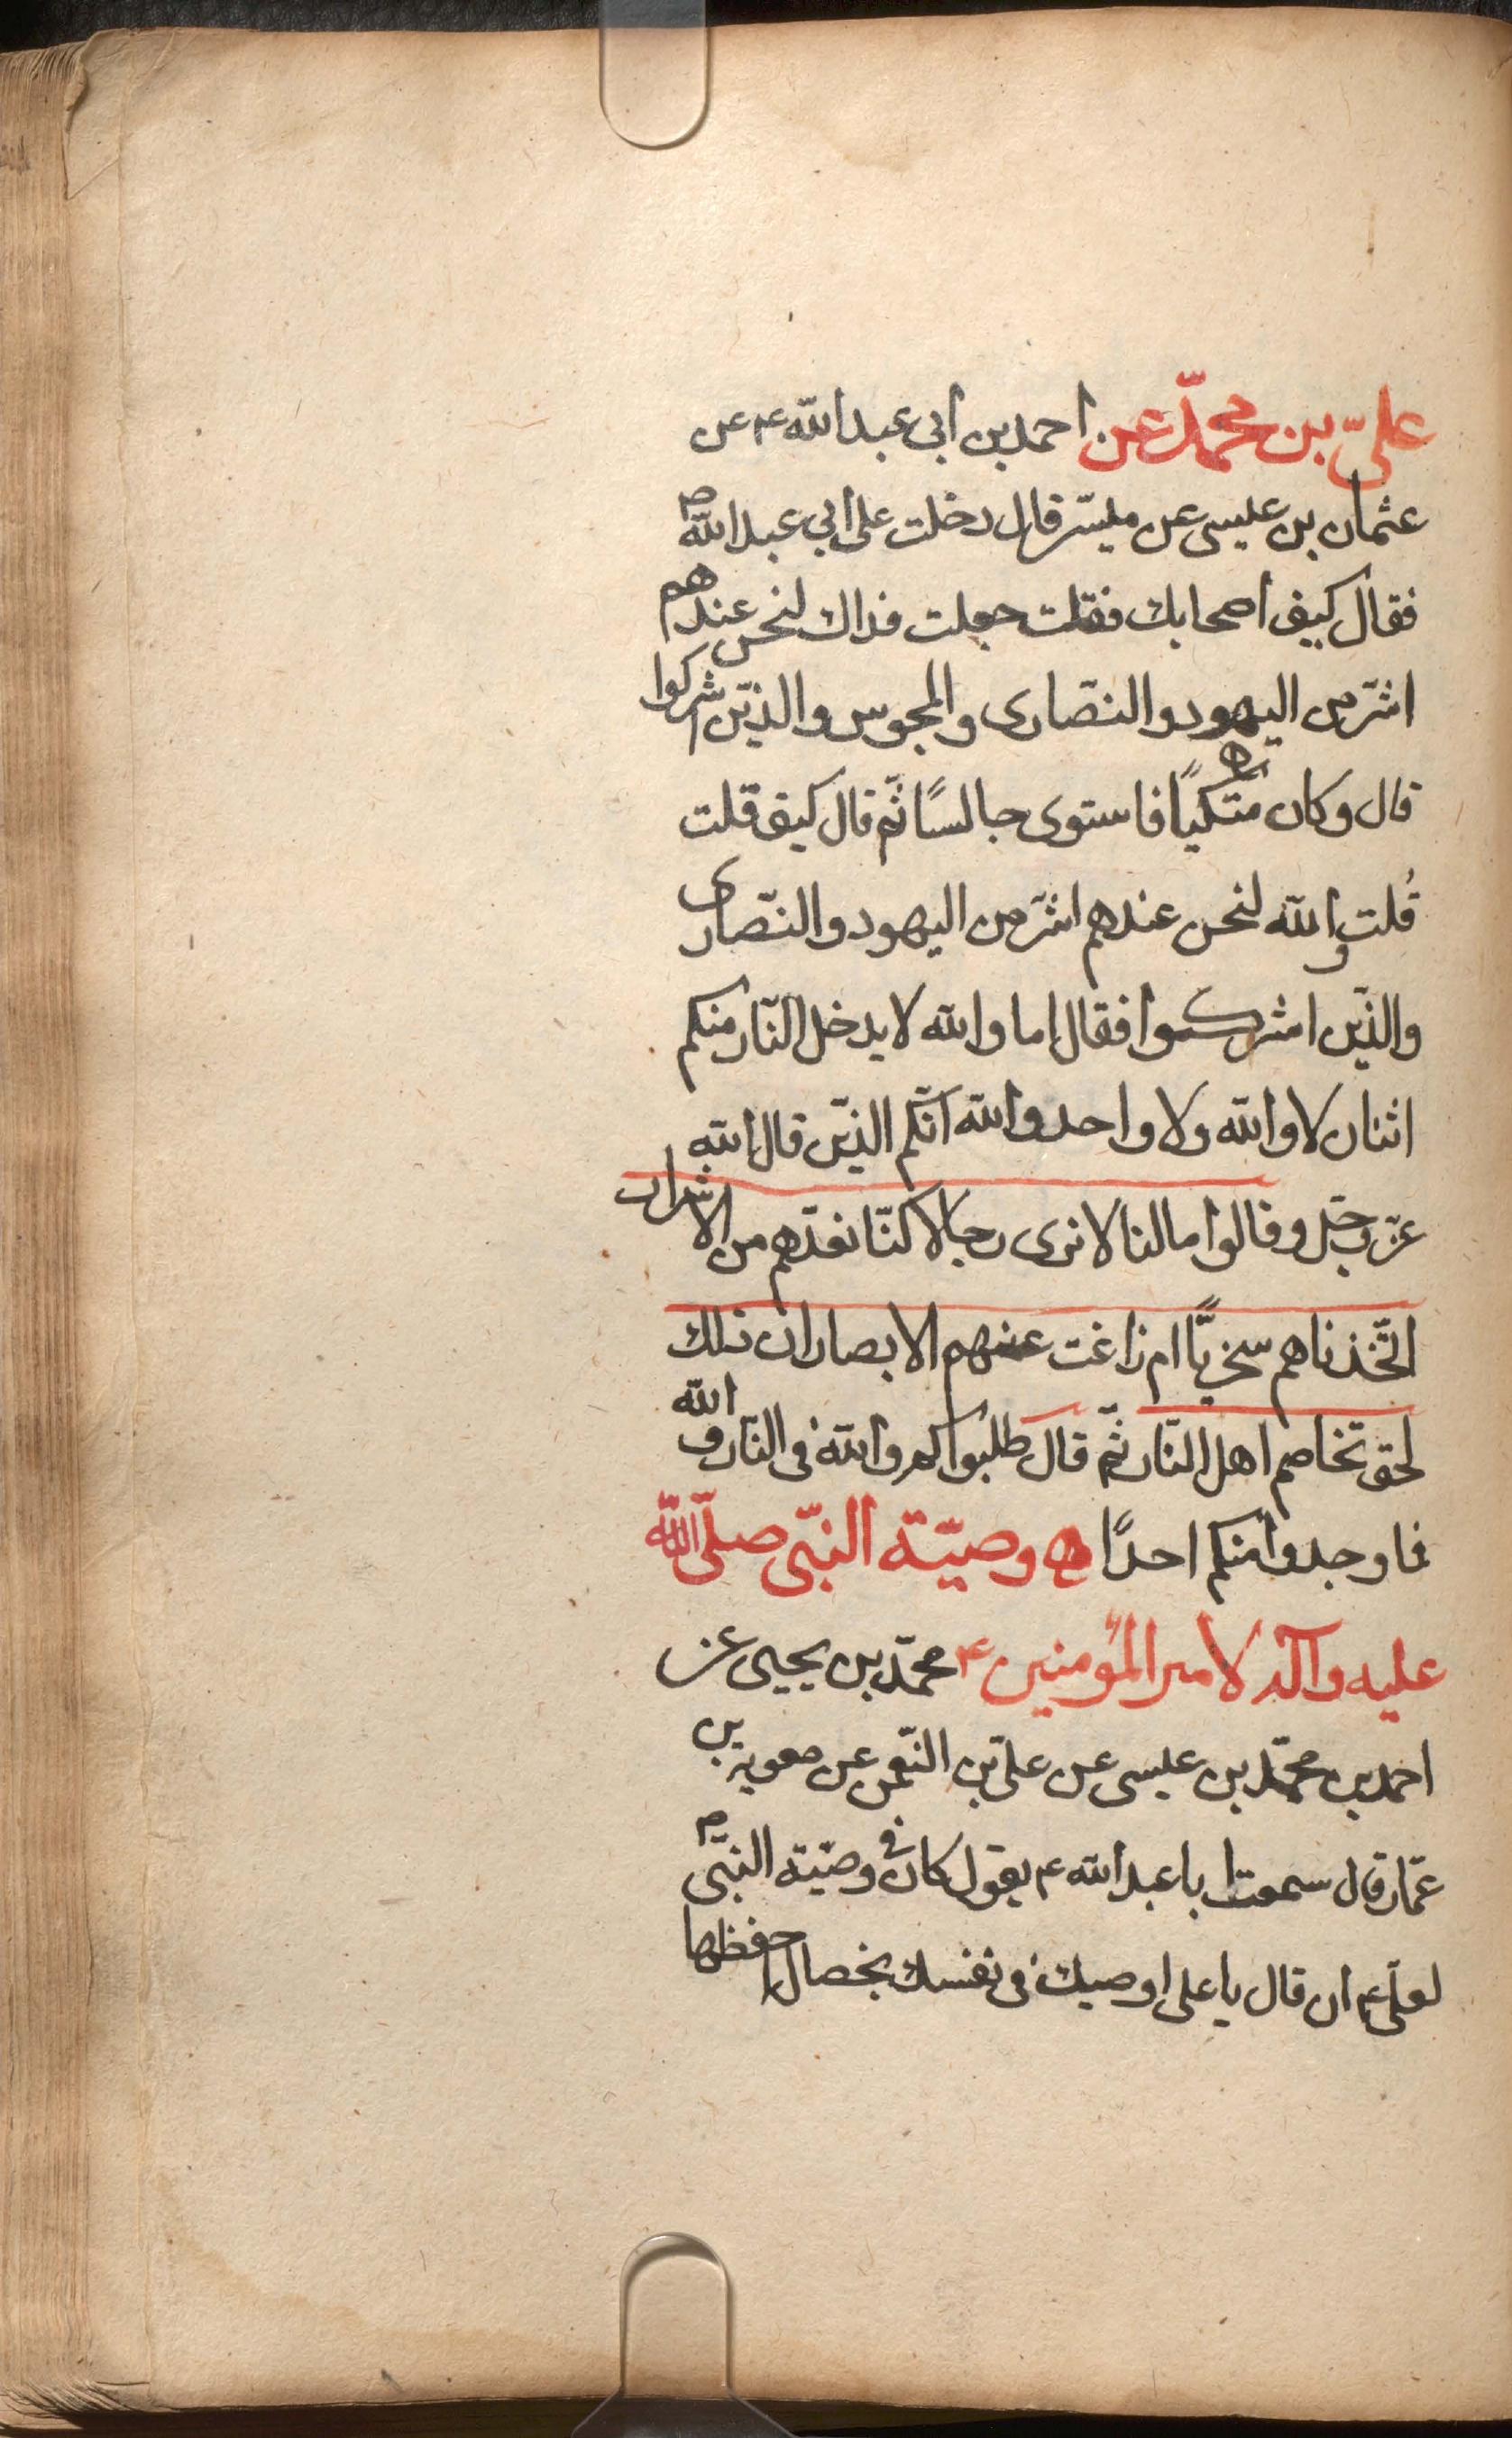 علیّ بن محمّد عن احمد بن ابی عبد الله ع عن
عثمان بن عیسی عن میسّر قال دخلت علی ابی عبد الله ص
فقال کیف اصحابك فقلت جعلت فداك لنحن عندهم
اشرّ من الیهود والنّصاری والمجوس والذّین اشرکوا
قال وکان متّکیًا فاستوی جالسًا ثمّ قال کیف قلت
قُلت والله لنحن عندهم اشرّ من الیهود والنّصاری
والذّین اشرکوا فقال اما والله لا یدخل النّار منکم
اثنان لا والله ولا واحد والله انّکم الذّین قال الله
عزّ وجّل وقالوا ما لنا لا نری رجالا کنّا نعدّهم من الاشرار
اتّخذناهم سخریًّا ام زاغت عنهم الابصار ان ذلك
لحق تخاصم اهل النّار ثمّ قال طلبوا کم والله فی النّار والله
فما وجدوا منکم احدًا ه وصیّة النبّی صلّی الله
علیه وآله لامیر المؤمنین ع محمّد بن یحیی عن
احمد بن محمّد بن عیسی عن علیّ بن النّعمن عن معویة بن
عمّار قال سمعت ابا عبد الله ع یقول کان فی وصیّة النبّی ص
لعلیّ ع ان قال یا علی اوصیك فی نفسك بخصال احفظها